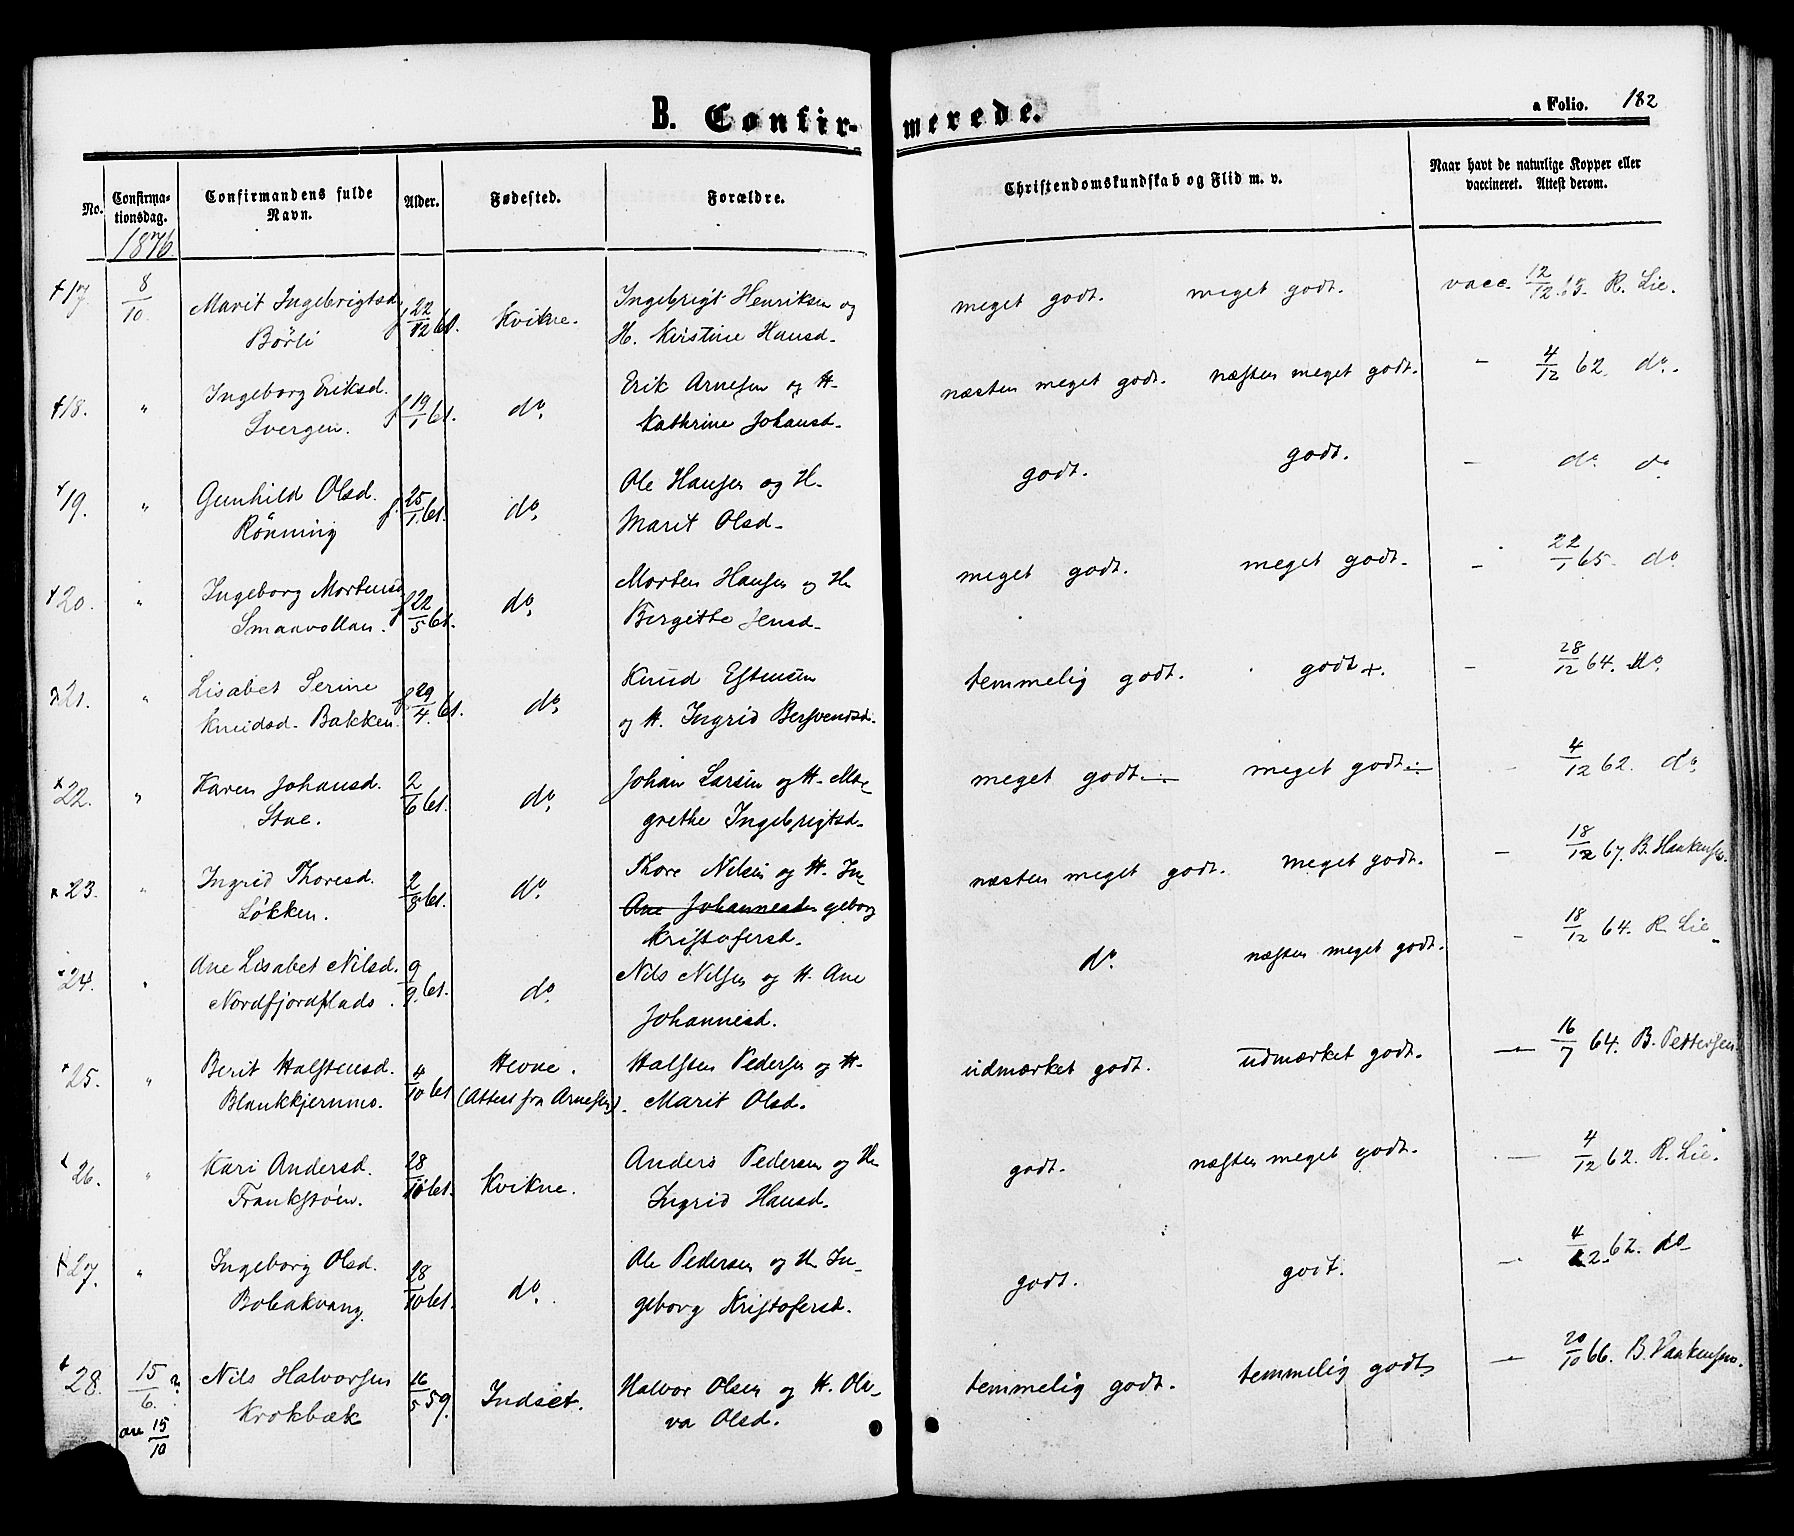 B. Confirmerede.
a Folio. 182
No.
Confirmationsdag.
Confirmandens fulde Navn.
Alder.
Fødested.
Forældre.
Christendomskundskab og Flid m. v.
Naar havt de naturlige Kopper eller vaccineret. Attest derom.
1876.
17. 8/10 Marit Ingebrigtsd. f 22/12 60. Kvikne. Ingebrigt Henriksen og meget godt. meget godt. vacc. 12/12 63. R. Lie.
Börli H. Kirstine Hansd.
18. " Ingeborg Eriksd. f 19/1 61. do. Erik Arnesen og H. næsten meget godt. næsten meget godt. - 4/12 62. do.
Svergen. Kathrine Johansd.
19. " Gunhild Olsd. f. 25/1 61. do. Ole Hansen og H. godt. godt. - do. do
Rönning Marit Olsd.
20. " Ingeborg Mortensd. f 22/5 61. do. Morten Hansen og H. meget godt. meget godt. - 22/1 65. do
Smaavollan. Birgitte Jensd.
21. " Lisabet Serine f. 29/4 61. do. Knud Estensen temmelig godt. godt+. - 28/12 64. do.
Knudsd. Bakken. og H. Ingrid Bersvendsd.
22. " Karen Johansd. 2/6 61. do. Johan Larsen og H. Ma- meget godt. meget godt. - 4/12 62. do.
Stae. grethe Ingebrigtsd.
23. " Ingrid Thoresd. 2/8 61. do. Thore Nilsen og H. In- næsten meget godt. meget godt. - 18/12 67. B. Haakensen.
Løkken. Ane Johannesdr geborg
Kristofersd.
24. " Ane Lisabet Nilsd. 9/9 61. do. Nils Nilsen og H. Ane do. næsten meget godt. - 18/12 64. R. Lie
Nordfjordplads. Johannesd.
25. " Berit Halstensd. 4/10 61. Hevne. Halsten Pedersen og H. udmærket godt. udmærket godt. - 16/7 64. B. Pettersen.
Blankkjernmo. (Attest fra Arnesen). Marit Olsd.
26. " Kari Andersd. 28/10 61. Kvikne. Anders Pedersen og H. godt. næsten meget godt. - 4/12 62. R. Lie.
Frankstöen. Ingrid Hansd.
27. " Ingeborg Olsd. 28/10 61. do. Ole Pedersen og H. In- godt. godt. - 4/12 62. do
Bobakvang geborg Kristofersd.
28. 15/6 ?. Nils Halvorsen 16/5 59. Indset. Halvor Olsen og H. Ola- temmelig godt. temmelig godt. - 20/10 66. B. Haakensen.
15/10 Krokbæk va Olsd.